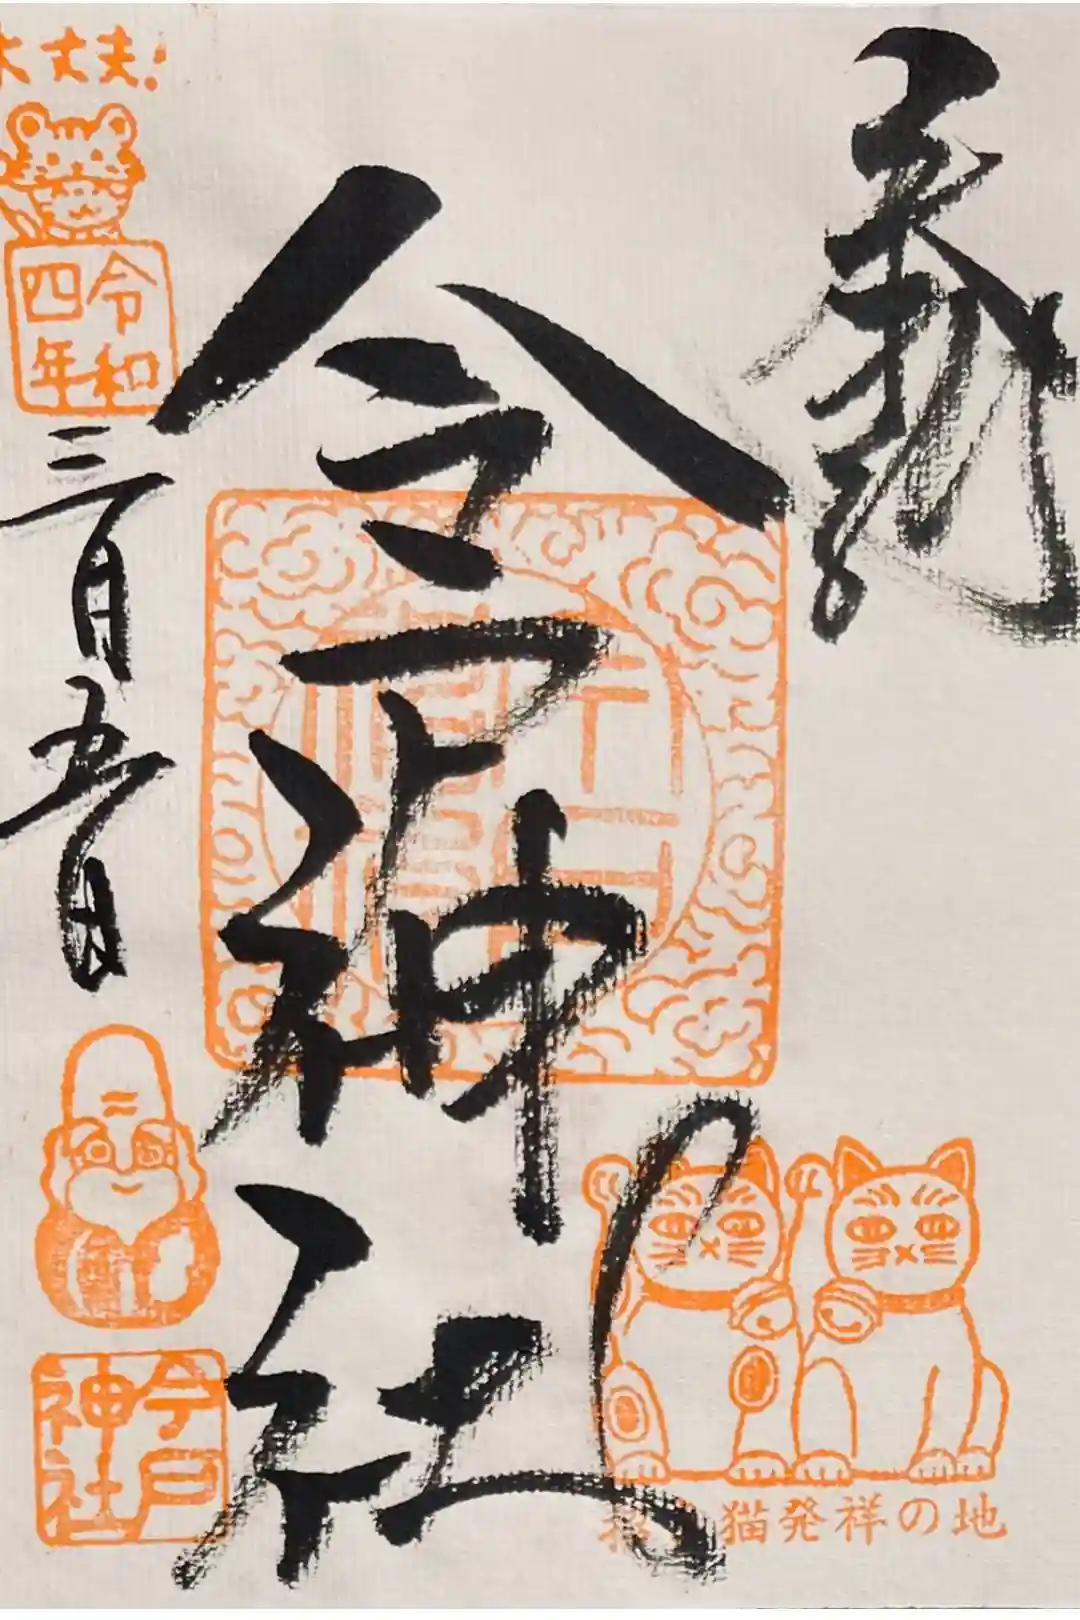 奉拝
今戸神社
招き猫発祥の地
大丈夫!
令和
四年
三月五日
今戸
神社